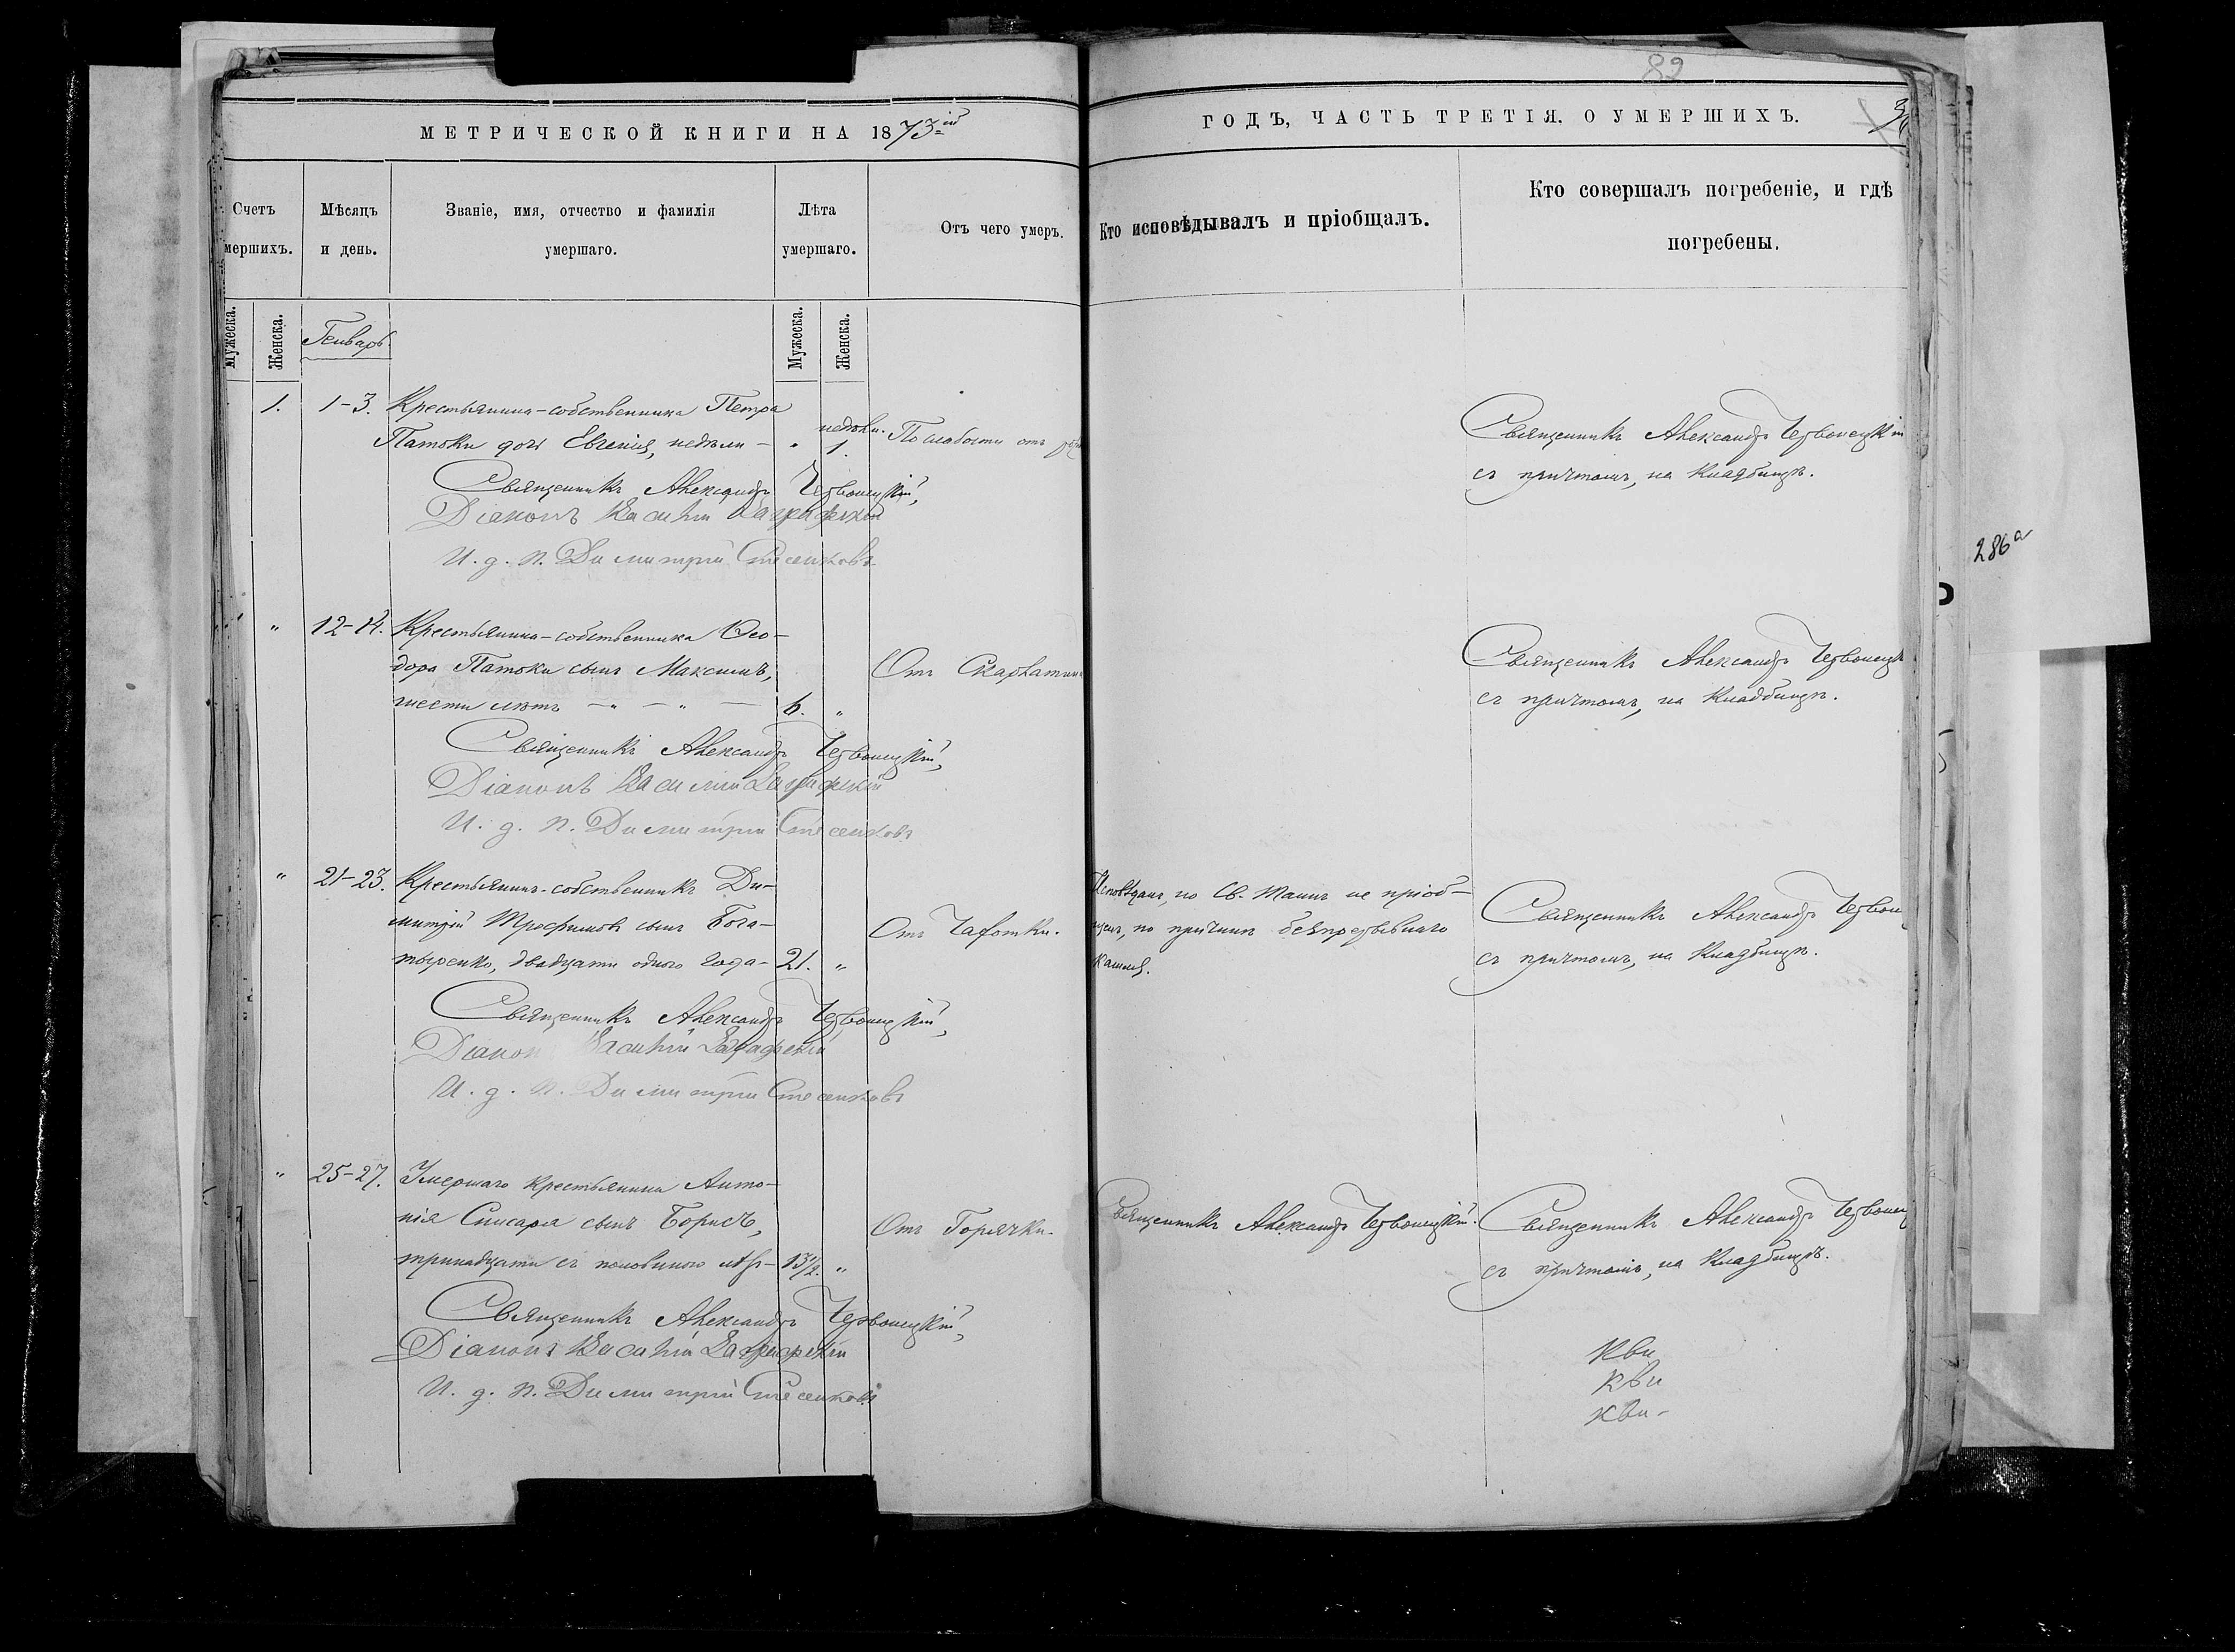 82
МЕТРИЧЕСКОЙ КНИГИ НА 1873-ій
ГОДЪ, ЧАСТЬ ТРЕТІЯ. О УМЕРШИХЪ.
Счетъ
мершихъ.
Мѣсяцъ
и день.
Званіе, имя, отчество и фамилія
умершаго.
Лѣта
умершаго.
Отъ чего умеръ.
Кто исповѣдывалъ и пріобщалъ.
Кто совершалъ погребеніе, и гдѣ
погребены.
Мужеска.
Женска.
Генварь.
Мужеска.
Женска.
1. 1-3. Крестьянина-собственника Петра
Патоки дочь Евгенія, недѣли - " недѣли. 1. По слабости отъ
Священникъ Александръ Червонецкій,
Діаконъ Василій
И. д. п. Димитрій Стесенковъ
Священникъ Александръ Червонецкій
съ причтомъ, на Кладбищѣ.
286а
" 12-14. Крестьянина-собственника Ѳео-
дора Патоки сынъ Максимъ, Отъ Скарлатин
шести лѣтъ - " - " - 6. "
Священникъ Александръ Червонецкій,
Діаконъ Василій
И. д. п. Димитрій Стесенковъ
Священникъ Александръ Червонецк
съ причтомъ, на Кладбищѣ.
" 21-23. Крестьянинъ-собственникъ Ди-
митрій Трофимовъ сынъ Бога- Отъ Чахотки.
тыренко, двадцати одного года - 21. "
Исповѣданъ, но Св. Таинъ не пріоб-
щенъ, по причинѣ безпрерывнаго
кашля.
Священникъ Александръ Червон
съ причтомъ, на Кладбищѣ.
Священникъ Александръ Червонецкій,
Діаконъ Василій
И. д. п. Димитрій Стесенковъ
" 25-27. Умершаго крестьянина Анто-
нія Слисаря сынъ Борисъ, Отъ Горячки.
тринадцати съ половиною лѣтъ - 13 1/2. "
Священникъ Александръ Червонецкій.
Священникъ Александръ Червонец
съ причтомъ, на Кладбищѣ.
Священникъ Александръ Червонецкій,
Діаконъ Василій
И. д. п. Димитрій Стесенковъ